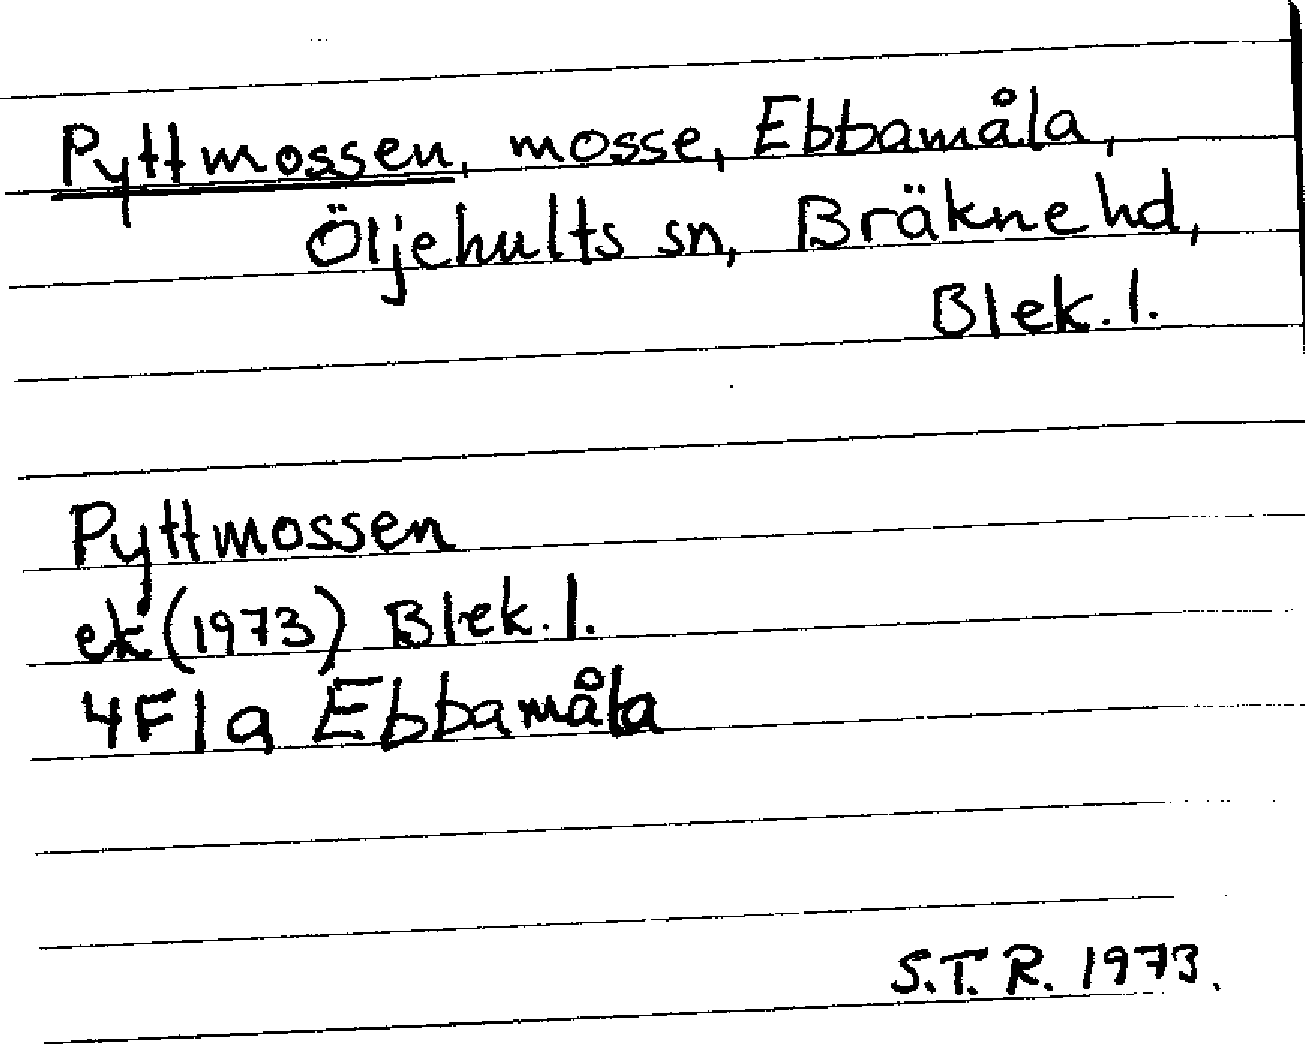 Pyttmossen, mosse, Ebbamåla,
Öljehults sn, Bräkne hd,
Blek. l.
Pyttmossen
ek (1973) Blek. l.
4F1a Ebbamåla
S.T.R. 1973.